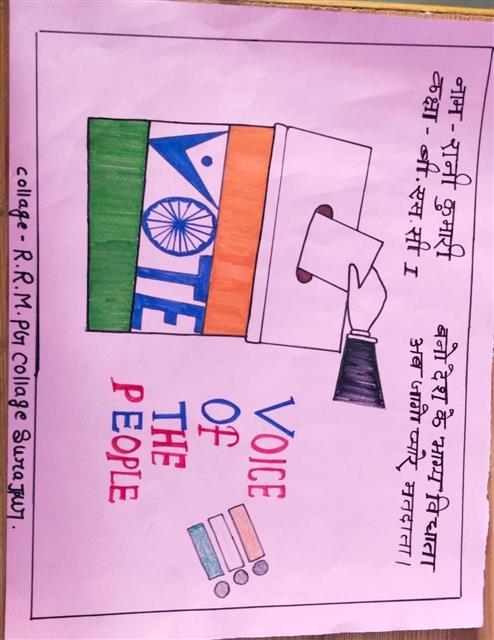 नाम - रानी कुमारी
कक्षा - बी. एस. सी I
बनो देश के भाग्य विधाता
अब जागो प्यारे मतदाता।
VOTE
VOICE
OF
THE
PEOPLE
collage - R.R.M.PG collage Surajpur.